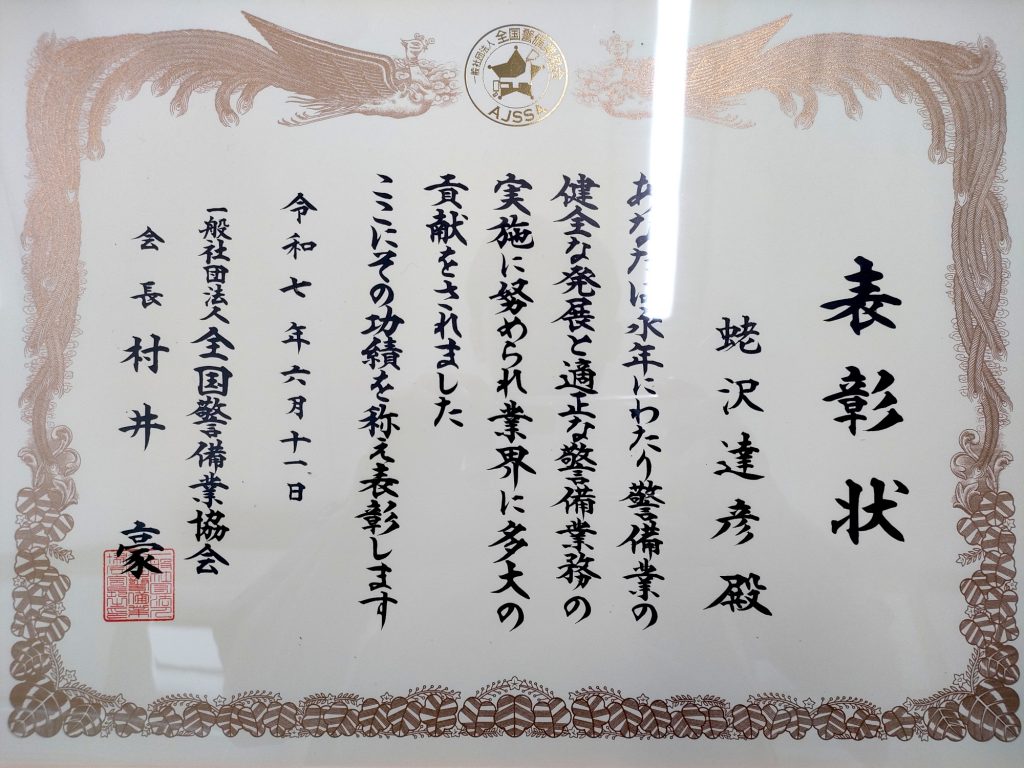 一般社団法人 全国警備業協会
AJSSA
表彰状
蛯沢達彦殿
あなたは永年にわたり警備業の
健全な発展と適正な警備業務の
実施に努められ業界に多大の
貢献をされました
ここにその功績を称え表彰します
令和七年六月十一日
一般社団法人全国警備業協会
会長村井豪